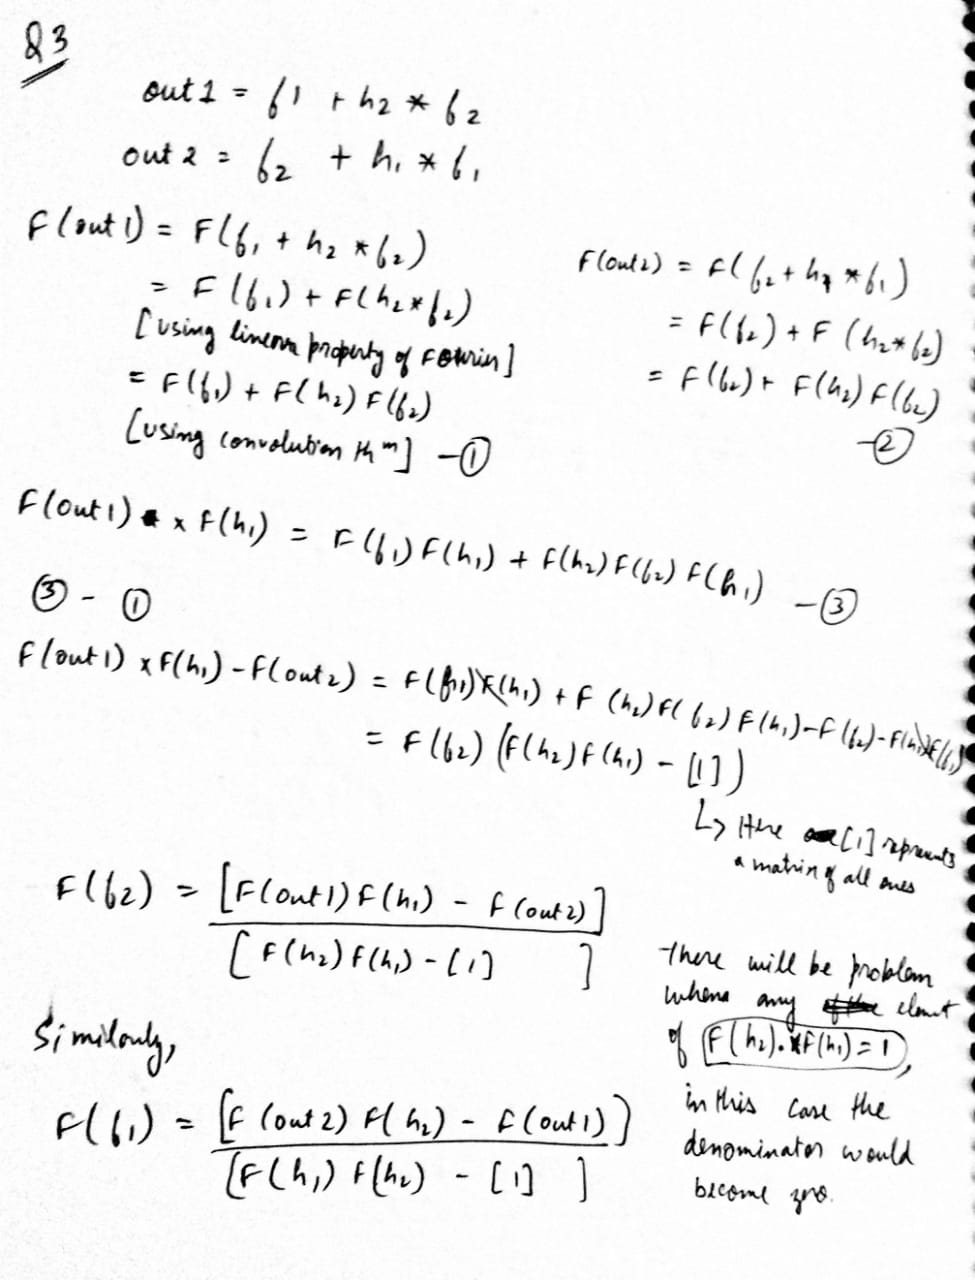 Q3
out1 = f1 + h2 * f2
out 2 = f2 + h1 * f1
F(out1) = F(f1 + h2 * f2)
= F(f1) + F(h2 * f2)
[using linear property of Fourier]
= F(f1) + F(h2) F(f2)
[using convolution thm] - ①
F(out2) = F(f2 + h1 * f1)
= F(f2) + F(h2 * f2)
= F(f2) + F(h2) F(f2)
- ②
F(out1) x F(h1) = F(f1) F(h1) + F(h2) F(f2) F(h1) - ③
③ - ①
F(out1) x F(h1) - F(out2) = F(f1) F(h1) + F(h2) F(f2) F(h1) - F(f2) - F(h1) F(f1)
= F(f2) (F(h2) F(h1) - [1])
↳ Here [1] represents
a matrix of all ones
F(f2) = [F(out1) F(h1) - F(out2)]
[F(h2) F(h1) - [1] ]
There will be problem
where any element
of F(h2).*F(h1) = 1,
in this case the
denominator would
become zero.
Similarly,
F(f1) = [F(out2) F(h2) - F(out1)]
[F(h1) F(h2) - [1] ]